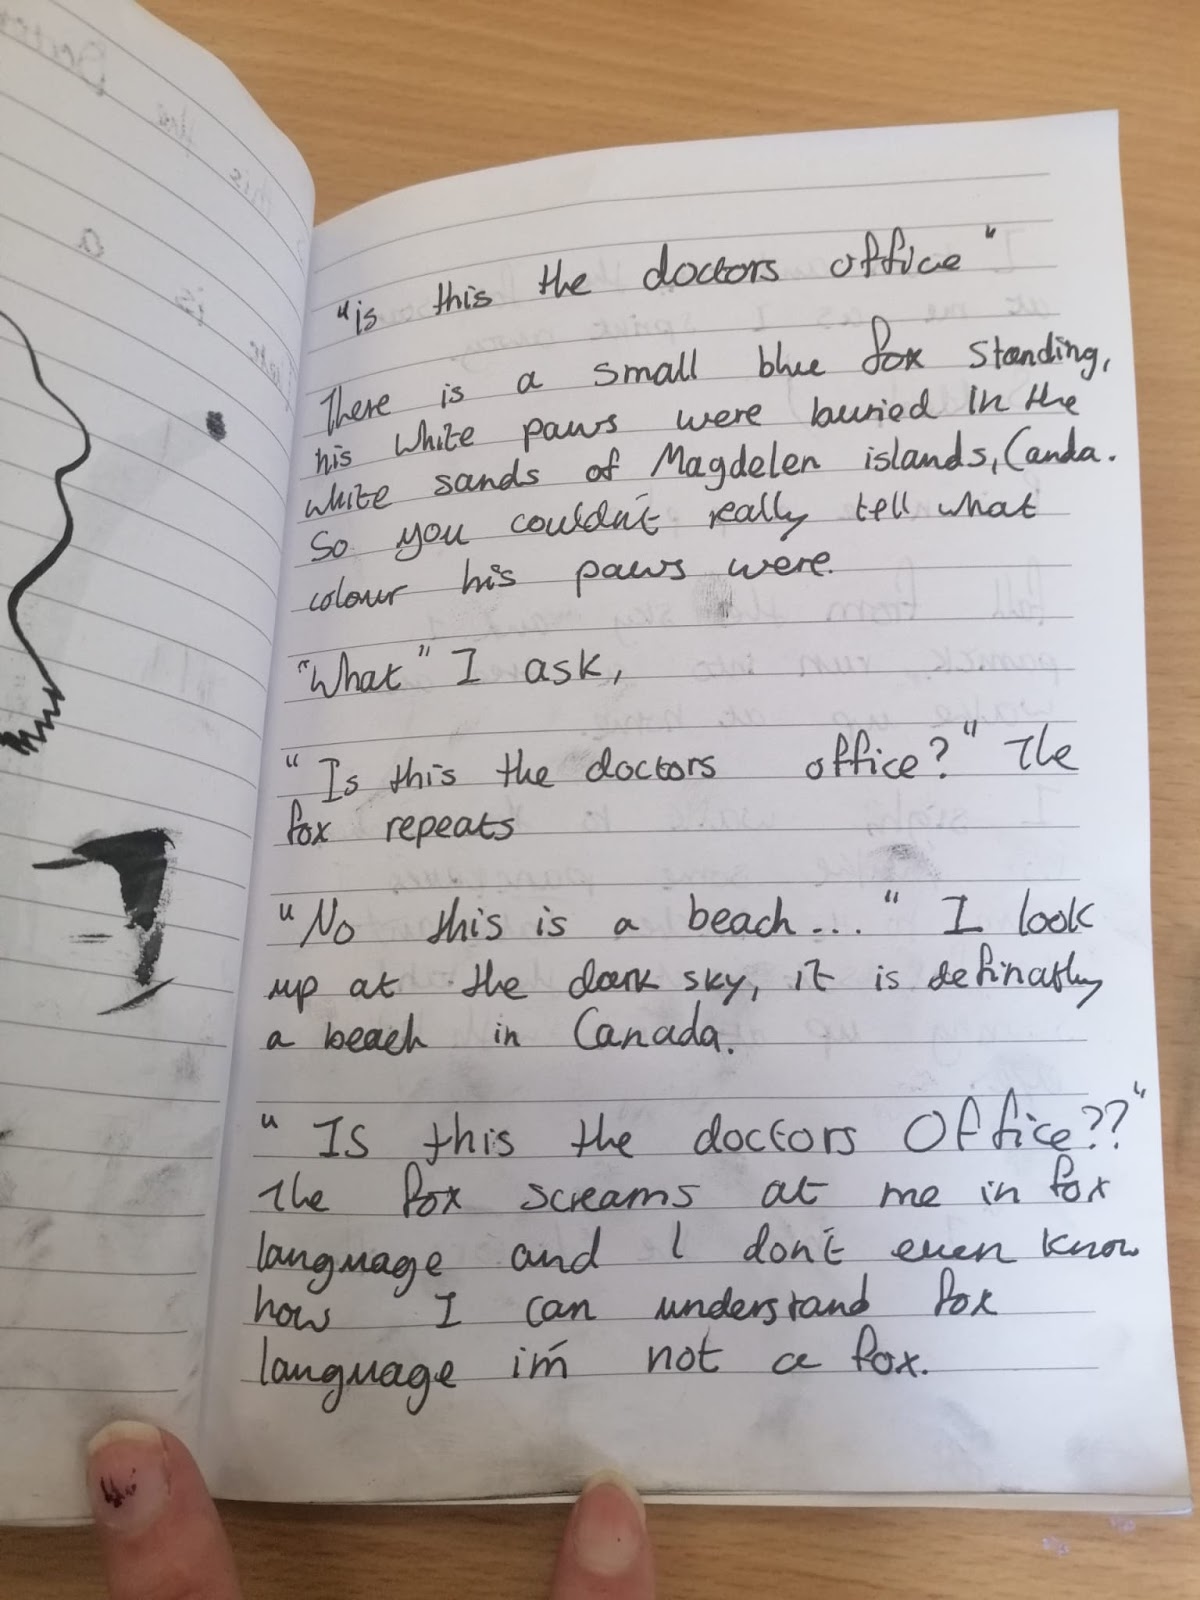 "is this the doctors office"
There is a small blue fox standing,
his white paws were buried in the
white sands of Magdelen islands, Canda.
So you couldn't really tell what
colour his paws were.
"What" I ask,
"Is this the doctors office?" The
fox repeats
"No this is a beach..." I look
up at the dark sky, it is definatly
a beach in Canada.
"Is this the doctors Office??"
The fox screams at me in fox
language and I don't even know
how I can understand fox
language i'm not a fox.